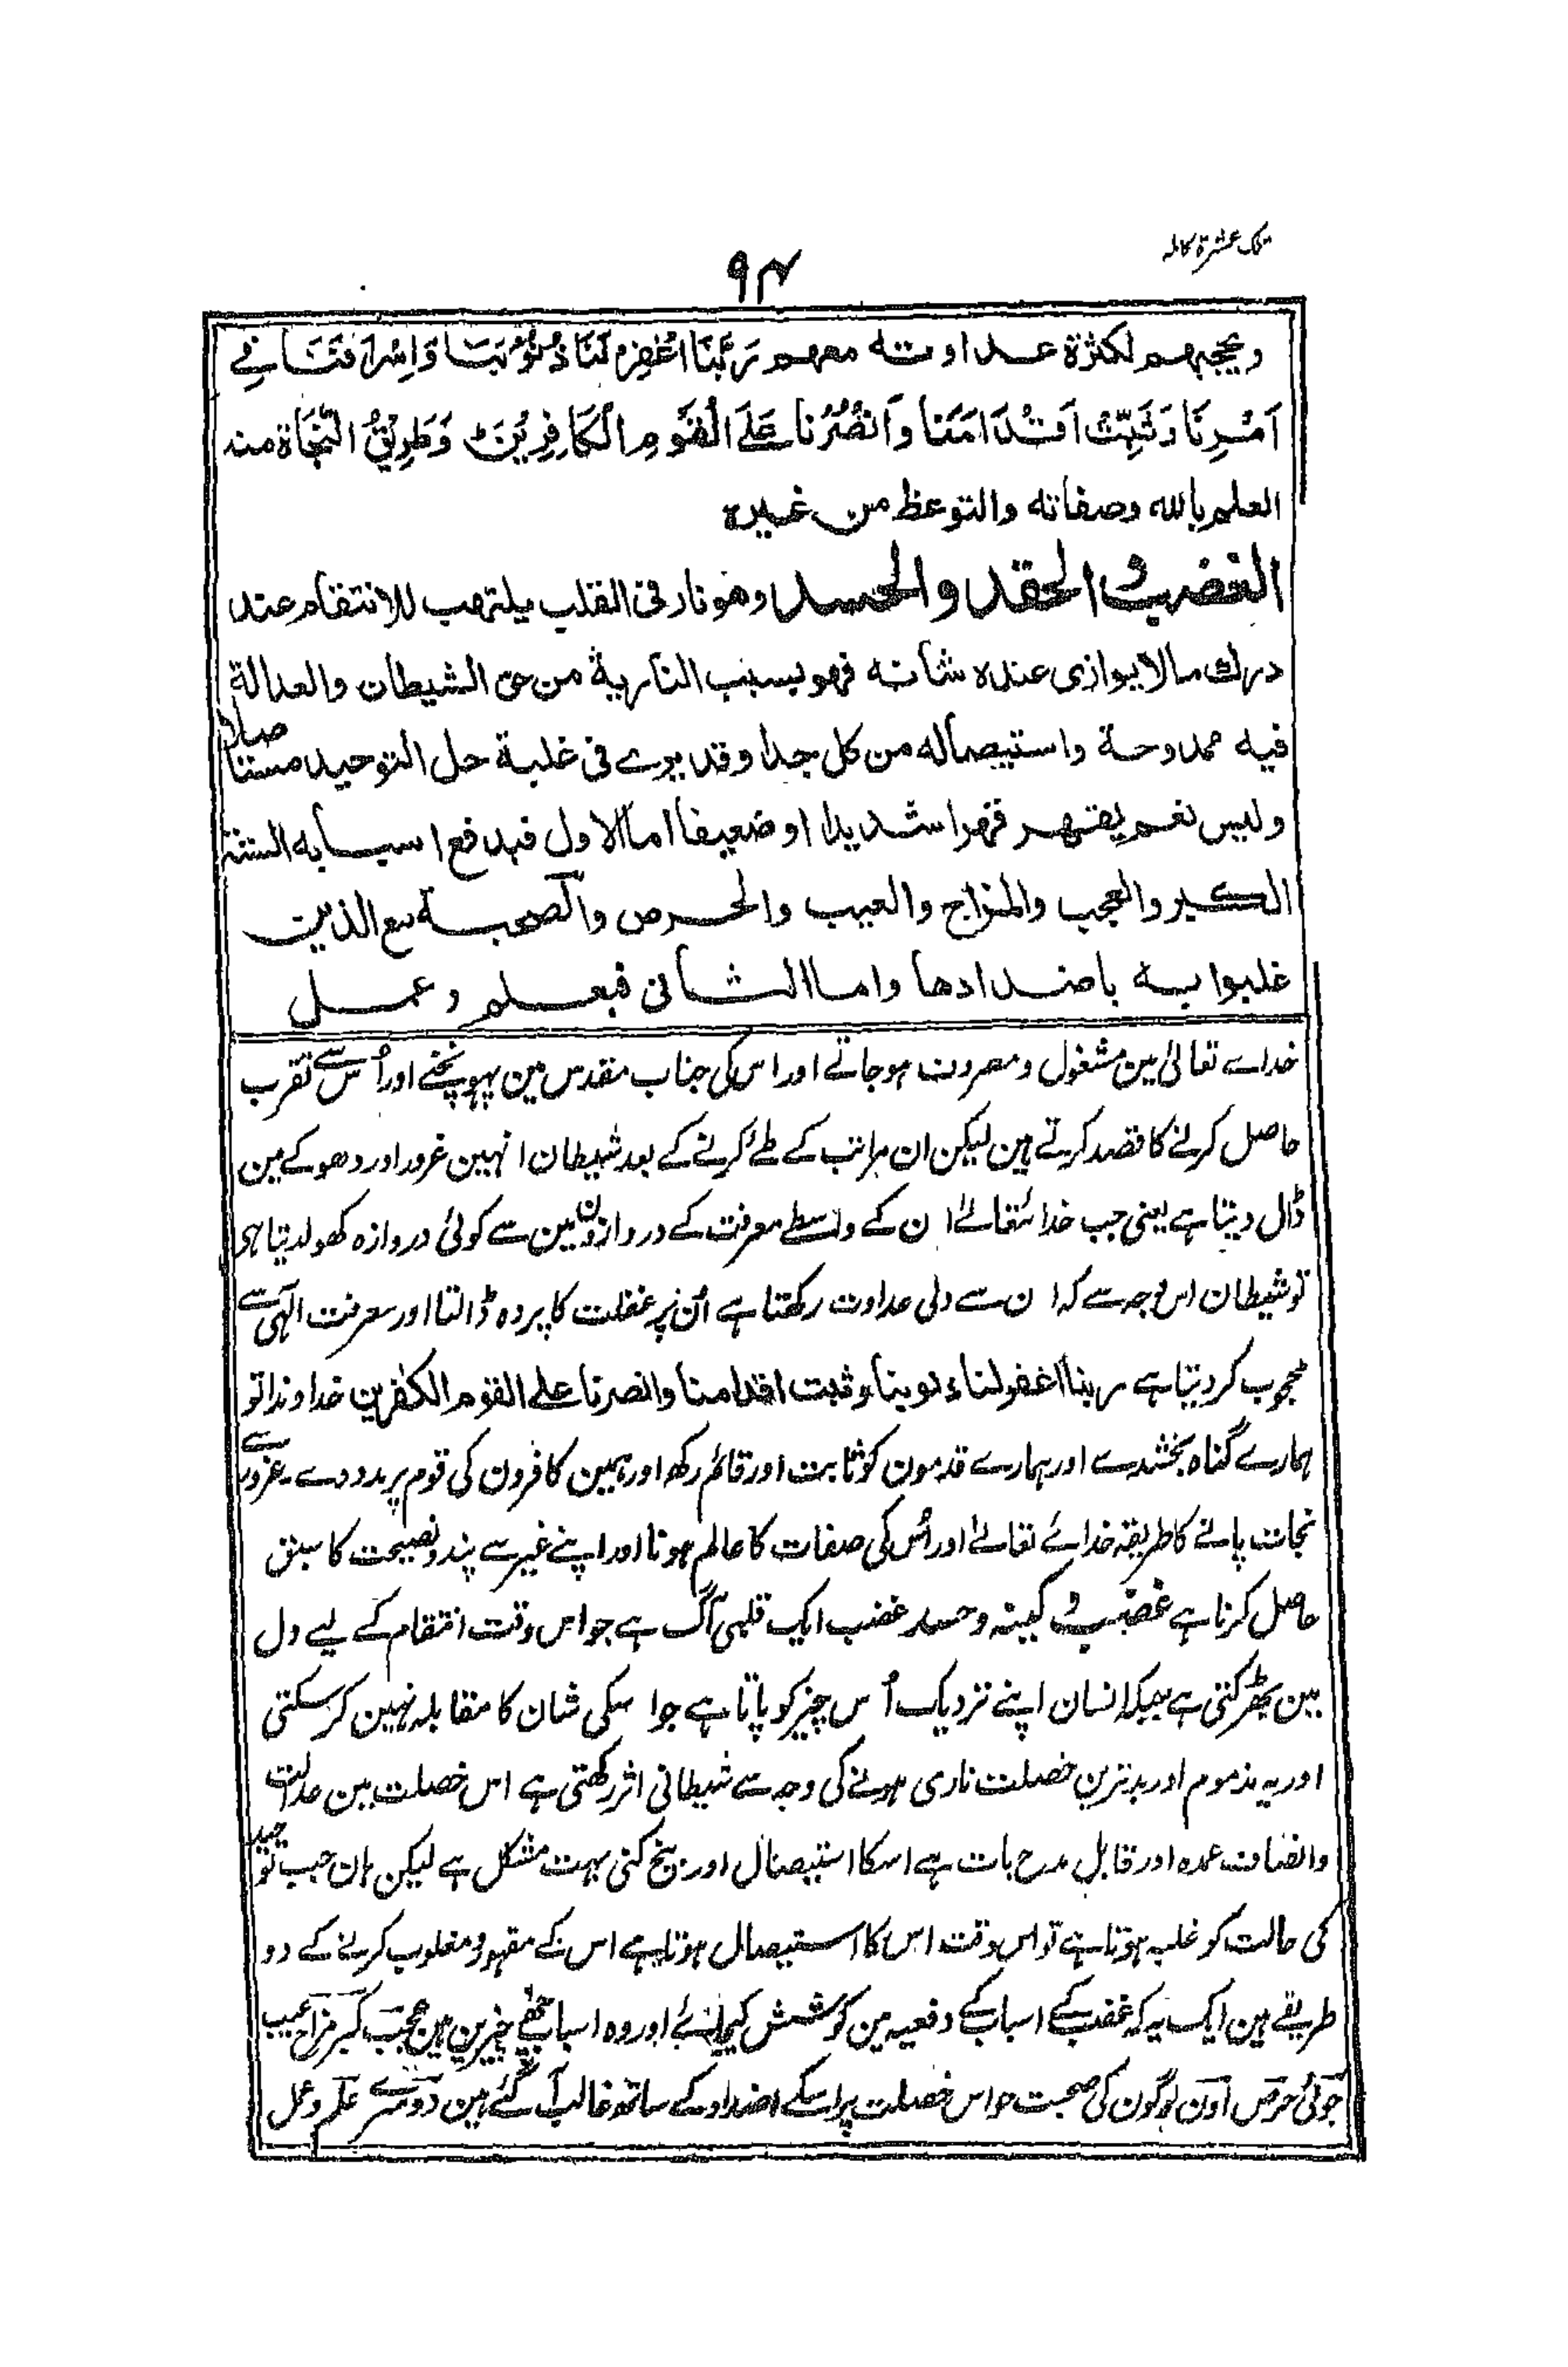 تلک عشرة کاملہ
۹۴
ويحجبهم لكثرة عداوته معهم رَبَّنَا اغْفِرْ لَنَا ذُنُوْبَنَا وَاِسْرَافَنَا فِيْ
اَمْرِنَا وَثَبِّتْ اَقْدَامَنَا وَانْصُرْنَا عَلَى الْقَوْمِ الْكَافِرِيْنَ وَطَرِيْقُ النَّجَاة منه
العلم بالله وصفاته والتوعظ من غيره
الغضب و الحقد والحسد وهو نار فى القلب يلتهب للانتقام عند
درك مالا يوازى عنده شانه فهو بسبب النارية من حق الشيطان والعدالة
فيه ممدوحة واستيصاله من كل جدا وقد يرے فى غلبة حل التوحيد مستاصلا
وليس نعم يقهر قهرا شديدا او ضعيفا اما الاول فبدفع اسبابه الستة
الكبر والعجب والمزاح والعيب والحرص والصحبة مع الذين
غلبوا به باضدادها واما الثانى فبعلم وعمل
خداے تعالیٰ مین مشغول ومصروف ہوجاتے اور اس کی جناب مقدس مین پہونچنے اور اُس سے تقرب
حاصل کرنے کا قصد کرتے ہین لیکن ان مراتب کے طے کرنے کے بعد شیطان انہین غرور اور دھوکے مین
ڈال دیتا ہے یعنی جب خدائتعالےٰ ان کے واسطے معرفت کے دروازون مین سے کوئی دروازہ کھولدیتا ہی
تو شیطان اس وجہ سے کہ ان سے دلی عداوت رکھتا ہے اُن پر غفلت کا پردہ ڈالتا اور معرفت الٓہی سے
محجوب کردیتا ہے ربنا اغفرلنا ذنوبنا وثبت اقدامنا وانصرنا علے القوم الکٰفرین خداوندا تو
ہمارے گناہ بخشدے اور ہمارے قدمون کو ثابت اور قائم رکھ اور ہمین کافرون کی قوم پر مدد دے ۔ غرور سے
نجات پانے کا طریقہ خدائے تعالےٰ اور اُس کی صفات کا عالم ہونا اور اپنے غیر سے پند ونصیحت کا سبق
حاصل کرنا ہے غضب و کینہ وحسد غضب ایک قلبی آگ ہے جو اس وقت انتقام کے لیے دل
مین بھڑکتی ہے جبکہ انسان اپنے نزدیک اُس چیز کو پاتا ہے جو اسکی شان کا مقابلہ نہین کرسکتی
اور یہ مذموم اور بدترین خصلت ناری ہونے کی وجہ سے شیطانی اثر رکھتی ہے اس خصلت مین عدالت
وانصاف عمدہ اور قابل مدح بات ہے اسکا استیصال اور بیخ کنی بہت مشکل ہے لیکن ہان جب توحید
کی حالت کو غلبہ ہوتا ہے تو اس وقت اس کا استیصال ہوتا ہے اس کے مقہور ومغلوب کرنے کے دو
طریقے ہین ایک یہ کہ غضب کے اسباب کے دفعیہ مین کوشش کیجائے اور وہ اسباب چھے چیزین ہین عجب کبر مزاح عیب
جوئی حرص اون لوگون کی صحبت جو اس خصلت پر اسکے اضداد کے ساتھ غالب آگئے ہین دوسرے علم وعمل